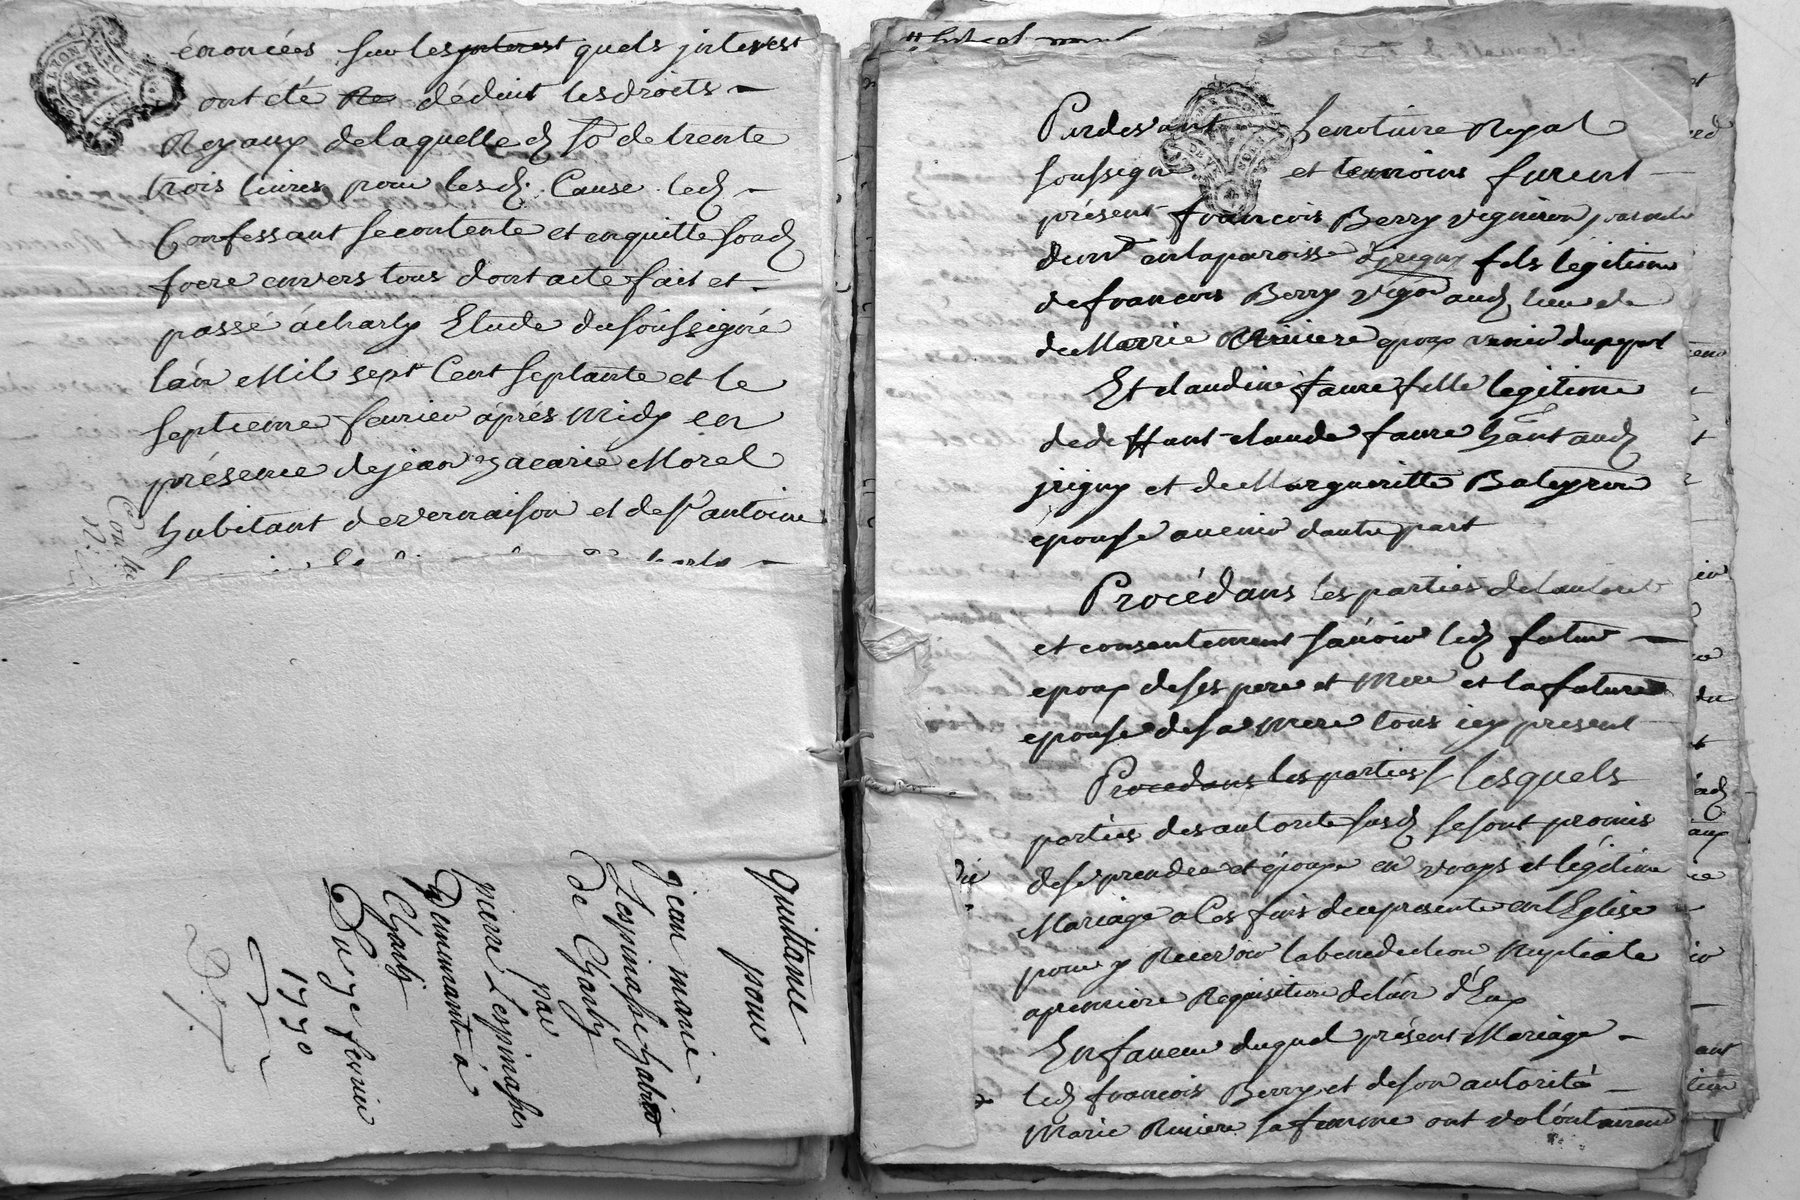 énoncées sur les interest quels jnterest
ont été Re déduit les droits
Royaux de laquelle d. so. de trente
trois livres pour lesd. Cause led.
Confessant se contente et en quitte sond.
frere envers tous dont acte fait et
passé à charly Etude du soussigné
lan Mil sept Cent septante et le
septieme fevrier après Midy en
présence de jean zacarie Morel
habitant de vernaison et de St antoine
quittance
pour
jean marie
Lespinasse habitant
De Charly
par
pierre Lespinasse
Demeurant à
Charly
Du 7e fevrier
1770
Pardevant Le notaire Royal
soussigné et temoins furent
présent francois Berry vigneron
en la paroisse d'jrigny fils légitime
de francois Berry vigon aud. lieu de
de Marrie Riviere epoux venir
Et claudine faure fille legitime
de deffunt claude faure hant aud.
jrigny et de Margueritte Bateyron
épouse avenir dautre part
Procédans les parties de lautorité
et consentement sávoir led. futur
epoux de ses pere et Mere et la future
epouse de sa mere tous icy present
Procedans les parties lesquels
parties des autorité susd. se sont promis
de se prendre et épouser en vrays et légitime
Mariage a Ces fins de se presenter en l'Eglise
pour y Recevoir la benediction Nuptiale
a premiere Requisition de lun d'Eux
En faveur duquel présent Mariage
led. francois Berry et de son autorité
Marie Riviere sa femme ont volontairement